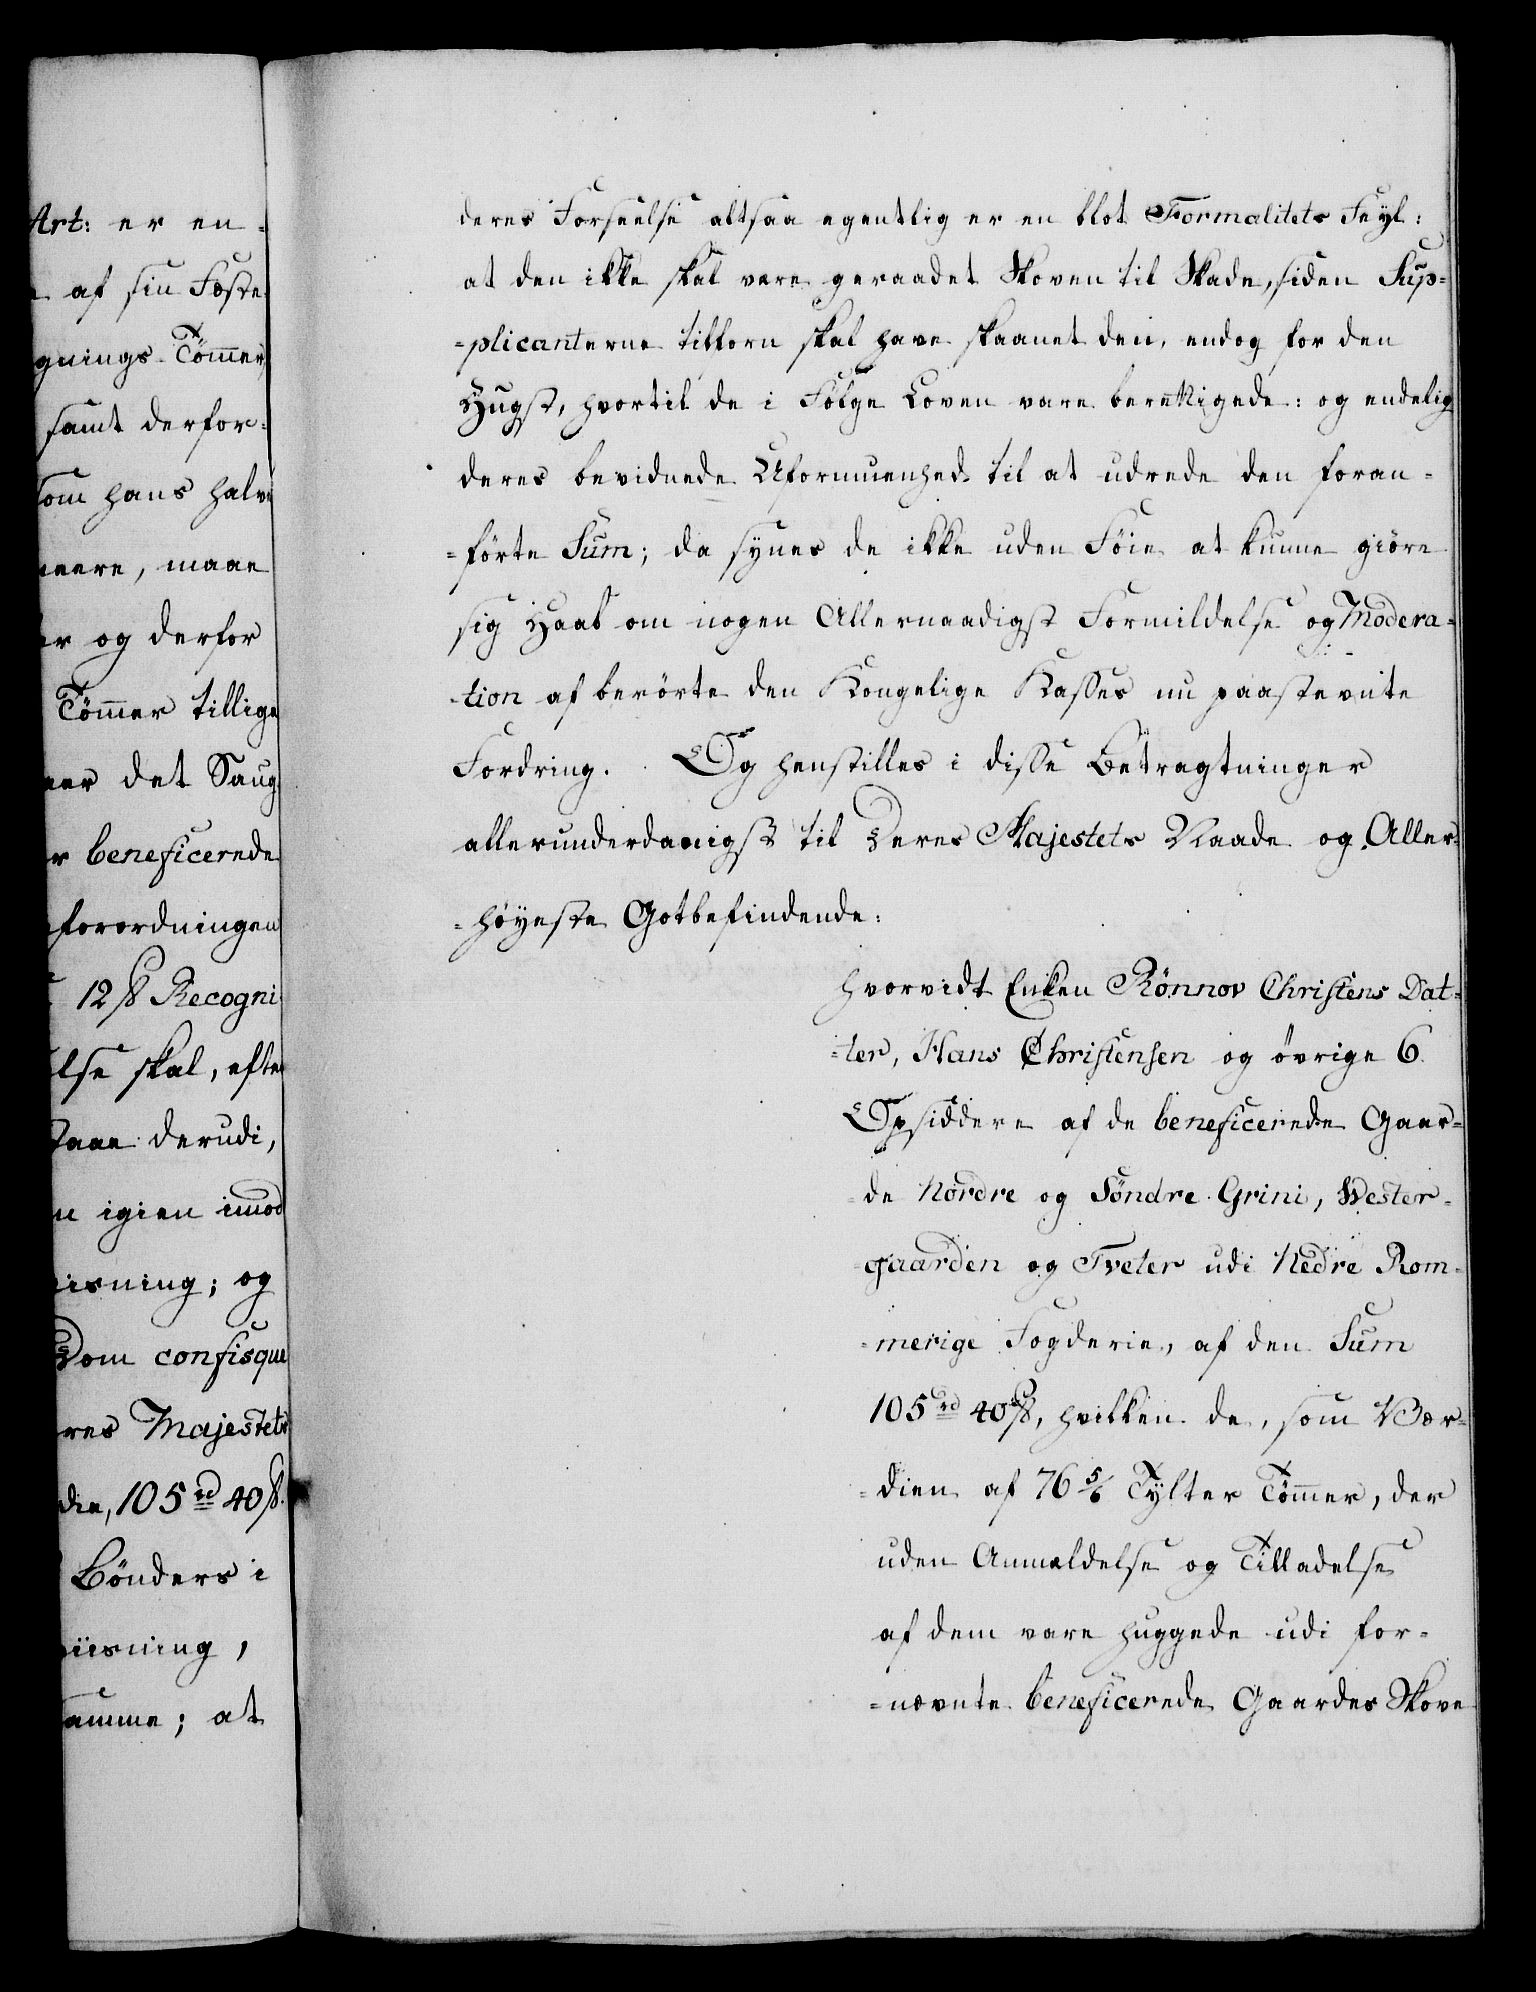 Art: er en-
af sin Fæste
gnings-Tömmer,
samt derfor-
som hans halve
meere, maae
er og derfor
Tömmer tillige
det Saug
beneficerede
forordningen
12 ß Recogni
else skal, efter
derudi,
igien imod
iisning; og
Dom confisque
res Majestets
die, 105 rd 40 ß.
Bönders i
iisning,
samme; at
deres Forseelse altsaa egentlig er en blot Formalitets Feyl:
at den ikke skal være geraadet Skoven til Skade, siden Sup-
-plicanterne tilforn skal have skaanet den, endog for den
Hugst, hvortil de i Fölge Loven vare berettigede: og endelig
deres bevidnede Uformuenhed til at udrede den foran-
-förte Sum; da synes de ikke uden Föie at kunne giöre
sig Haab om nogen Allernaadigst Formildelse og Modera-
-tion af berörte den Kongelige Kasses nu paastævnte
Fordring. Og henstilles i disse Betragtninger
allerunderdanigst til Deres Majestets Naade og Aller-
-höyeste Gotbefindende:
Hvorvidt Enken Rönnov Christens Dat-
-ter, Hans Christensen og övrige 6
Opsiddere af de beneficerede Gaar-
-de Nordre og Söndre Grini, Wester-
-gaarden og Tveter udi Nedre Rom-
-merige Fogderie, af den Sum
105 rd 40 ß, hvilken de, som Vær-
-dien af 76 5/6 Tylter Tömmer, der
uden Anmeldelse og Tilladelse
af dem vare huggede udi for-
-nævnte beneficerede Gaardes Skove